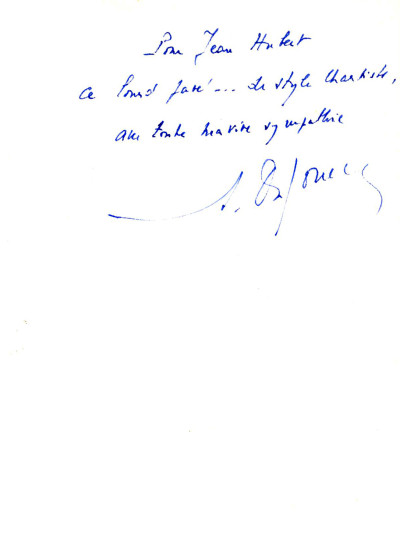 Pour Jean Hubert
ce lourd pavé... de style chartiste,
avec toute ma vive sympathie